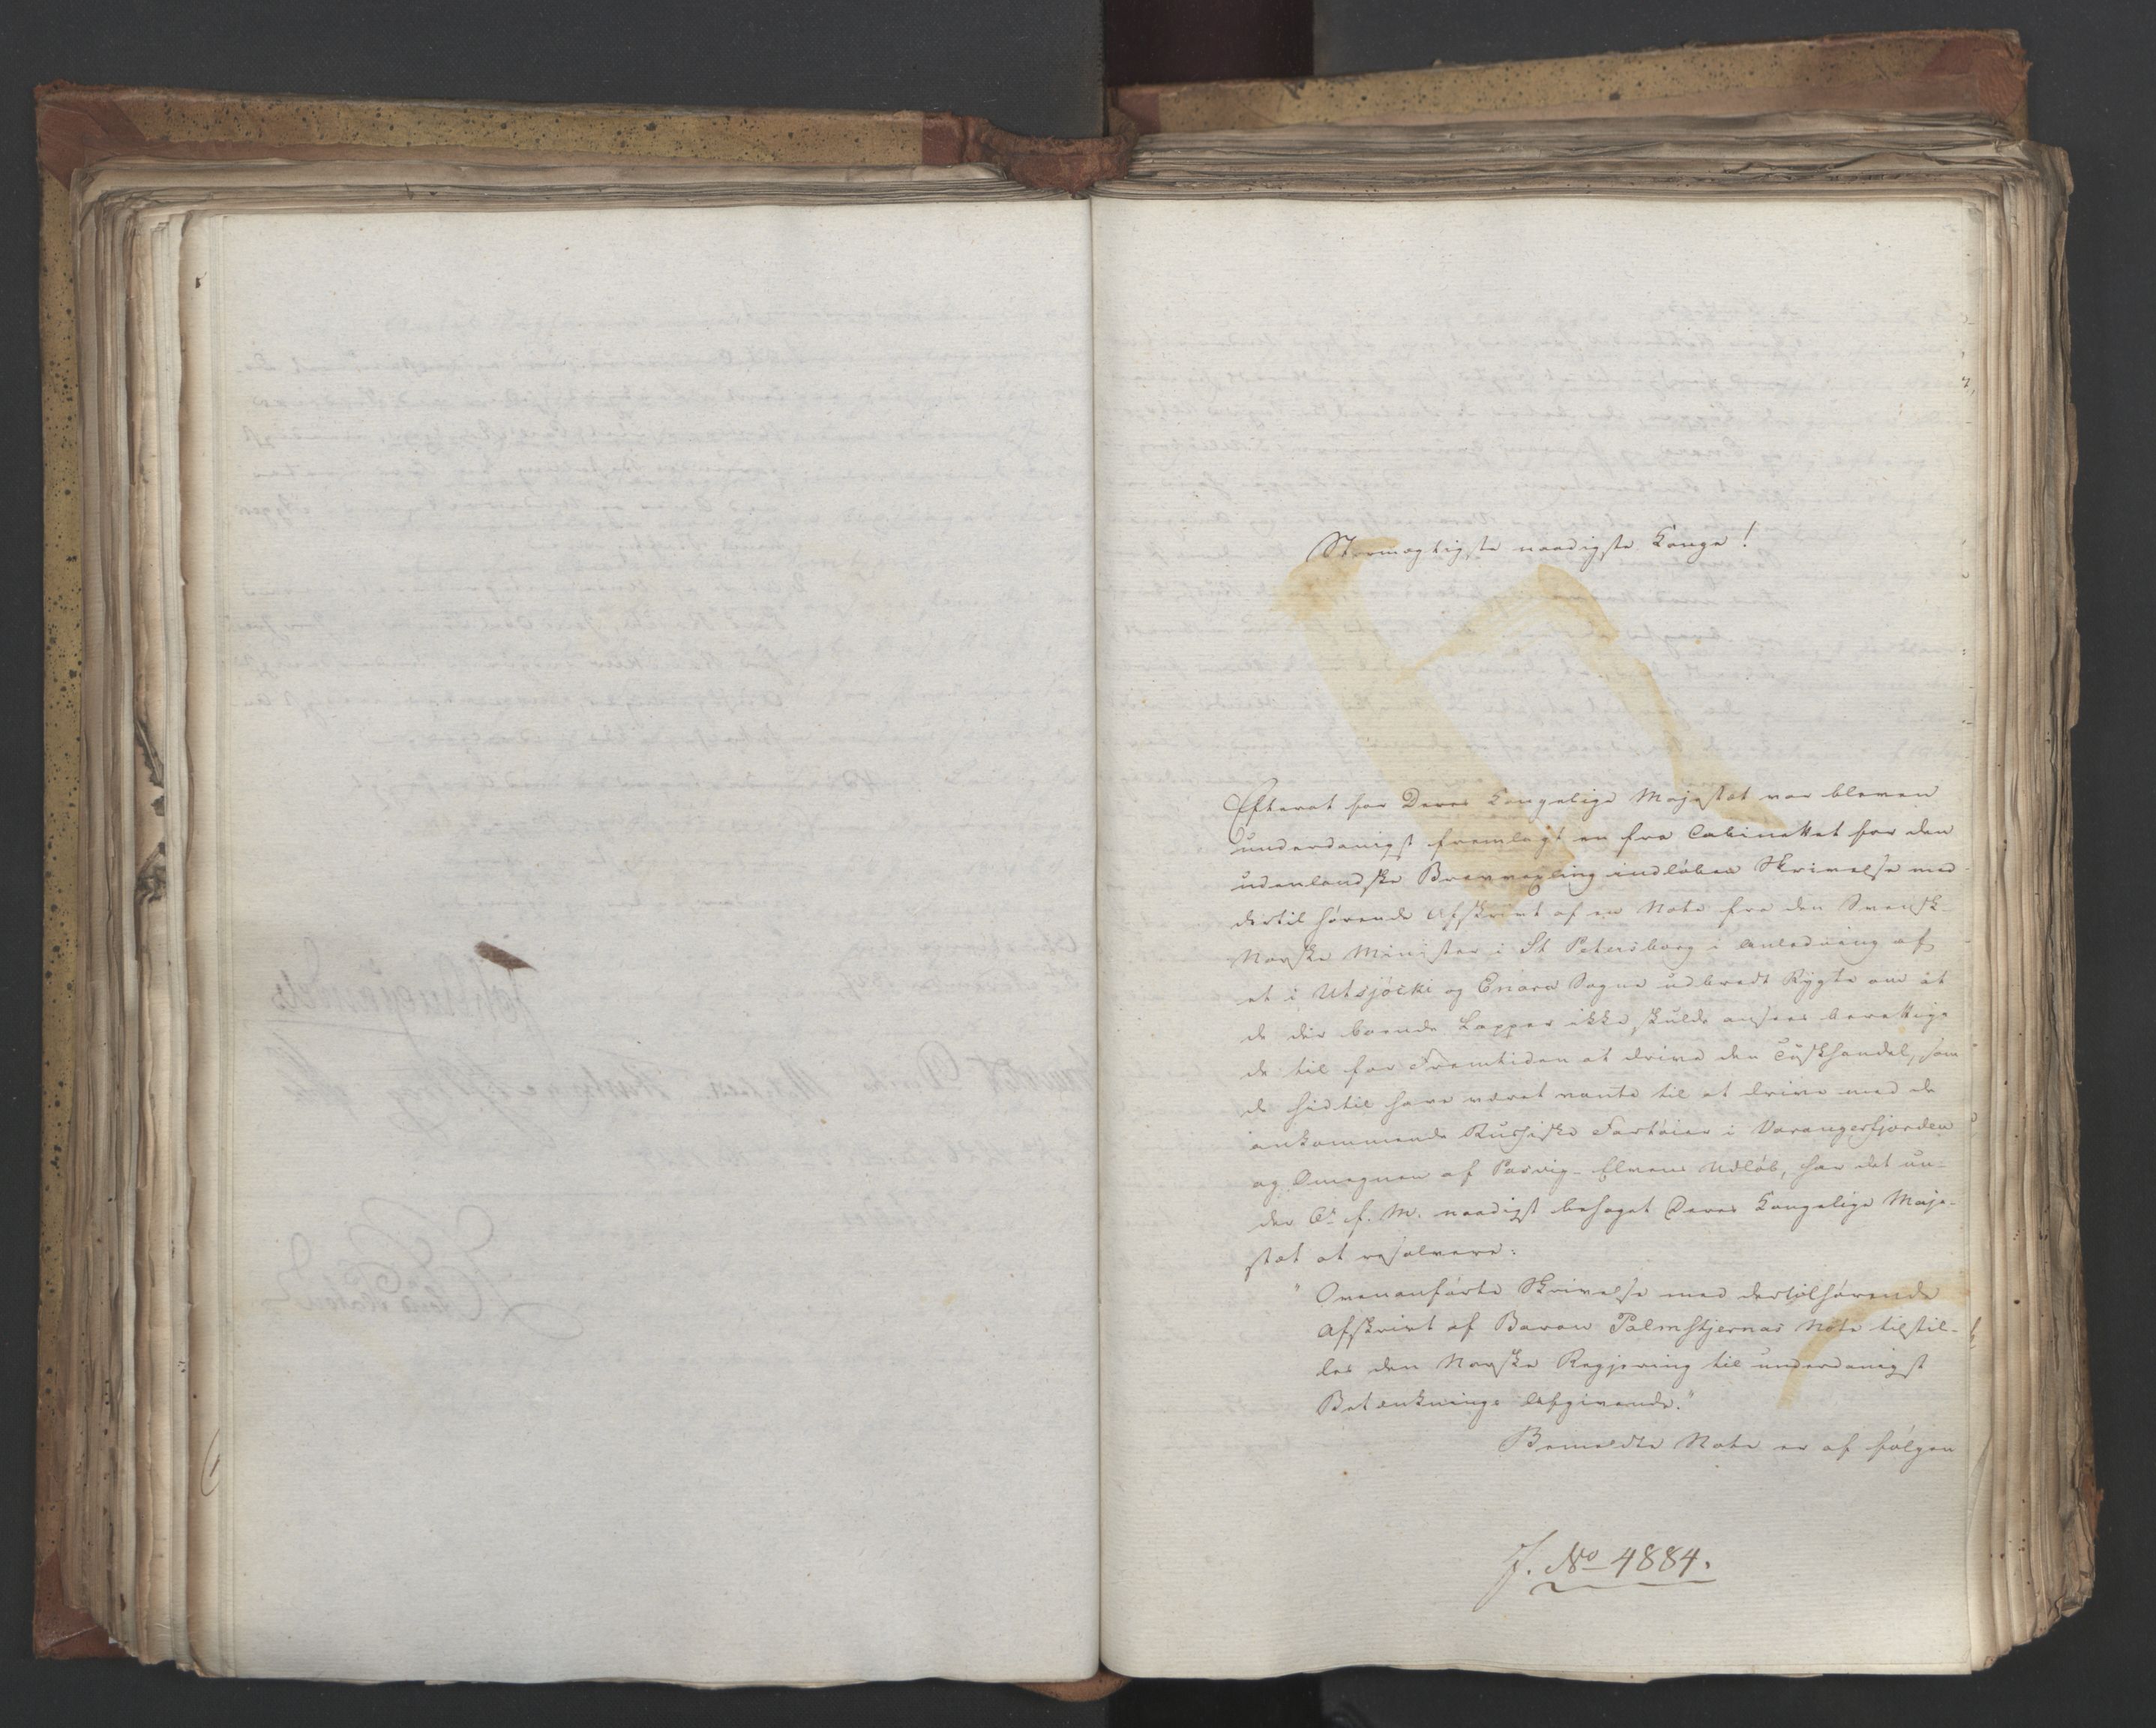 Stormægtigste naadigste Konge!
Efterat for Deres Kongelige Majestæt var bleven
underdanigst fremlagt en fra Cabinettet for den
udenlandske Brevvexling indløben Skrivelse med
dertil hørende Afskrivt af en Note fra den Svensk-
Norske Minister i St Petersborg i Anledning af
et i Utsjöcki og Enara Sogne udbredt Rygte om at
de der boende Lapper ikke skulde ansees berettige
de til for Fremtiden at drive den Tuskhandel, som
de hidtil have været vante til at drive med de
ankommende Russiske Fartøier i Varangerfjorden
og Omegnen af Pasvig-Elvens Udløb, har det un-
der 6te f. M. naadigst behaget Deres Kongelige Maje-
stæt at resolvere:
"Ovenanførte Skrivelse med dertilhørende
Afskrivt af Baron Palmstjernas Note tilstil-
les den Norske Regjering til underdanigst
Betænknings Afgivende."
Bemeldte Note er af følgen
J. No 4884.